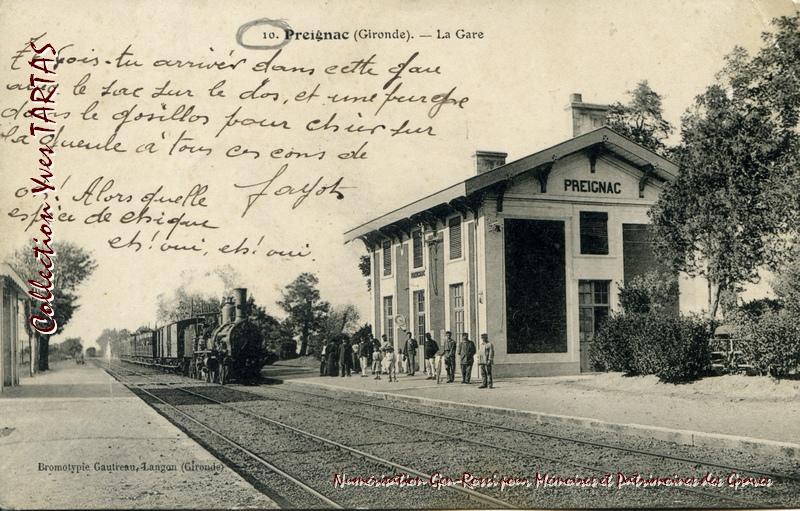 10. Preignac (Gironde). — La Gare
Et vois-tu arriver dans cette gare
avec le sac sur le dos, et une purge
dans le gosillos pour chier sur
la gueule à tous ces cons de
Fayots
oh! Alors quelle
espèce de chique
eh! oui, eh! oui.
PREIGNAC
PREIGNAC
Collection Yves TARTAS
Bromotypie Gautreau, Langon (Gironde)
Numérisation Gen-Rossi pour Mémoires et Patrimoines des Graves